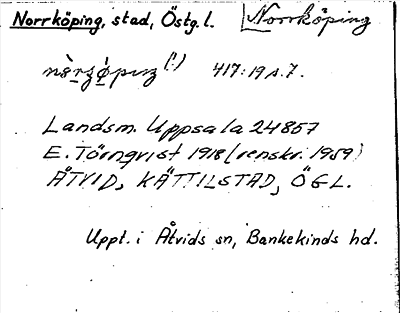 Norrköping, stad, Östg. l. Norrköping
417:19 s. 7.
Landsm. Uppsala 24857
E. Törnqvist 1918 (renskr. 1959)
ÅTVID, KÄTTILSTAD, ÖGL.
Uppt. i Åtvids sn, Bankekinds hd.